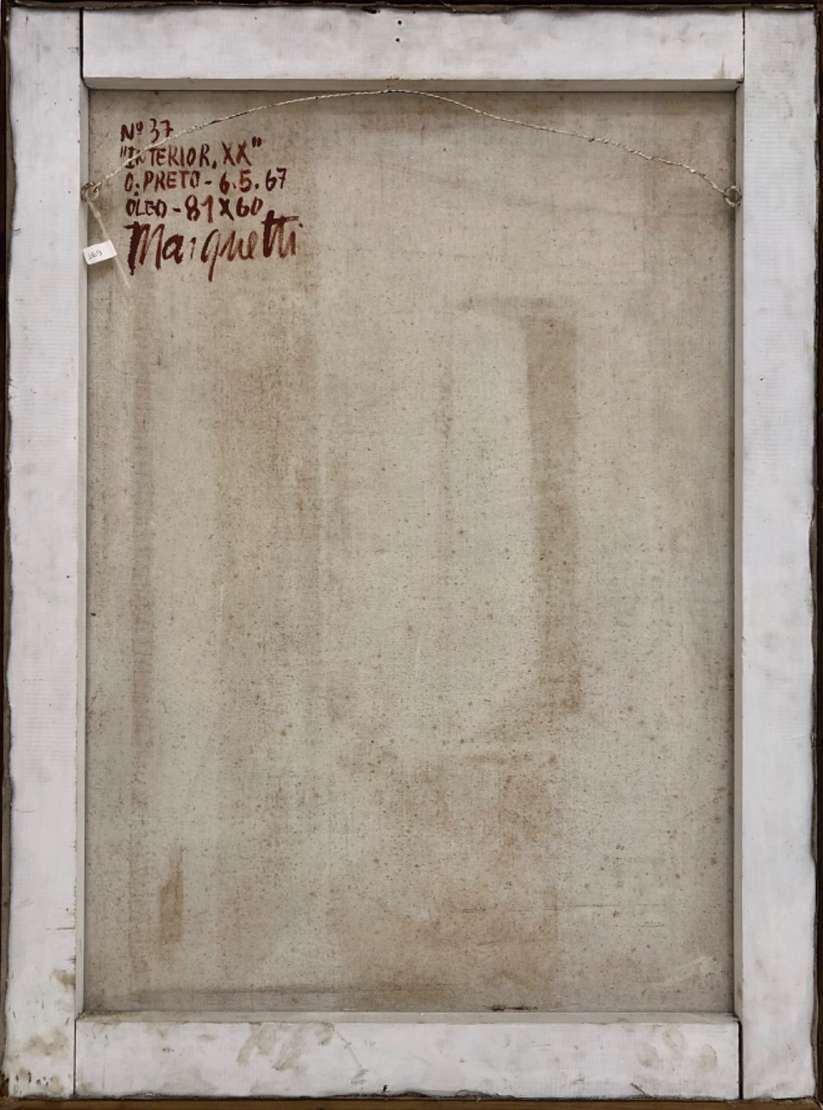 Nº 37
"INTERIOR, XX"
O. PRETO - 6.5.67
ÓLEO - 81 X 60
Marquetti